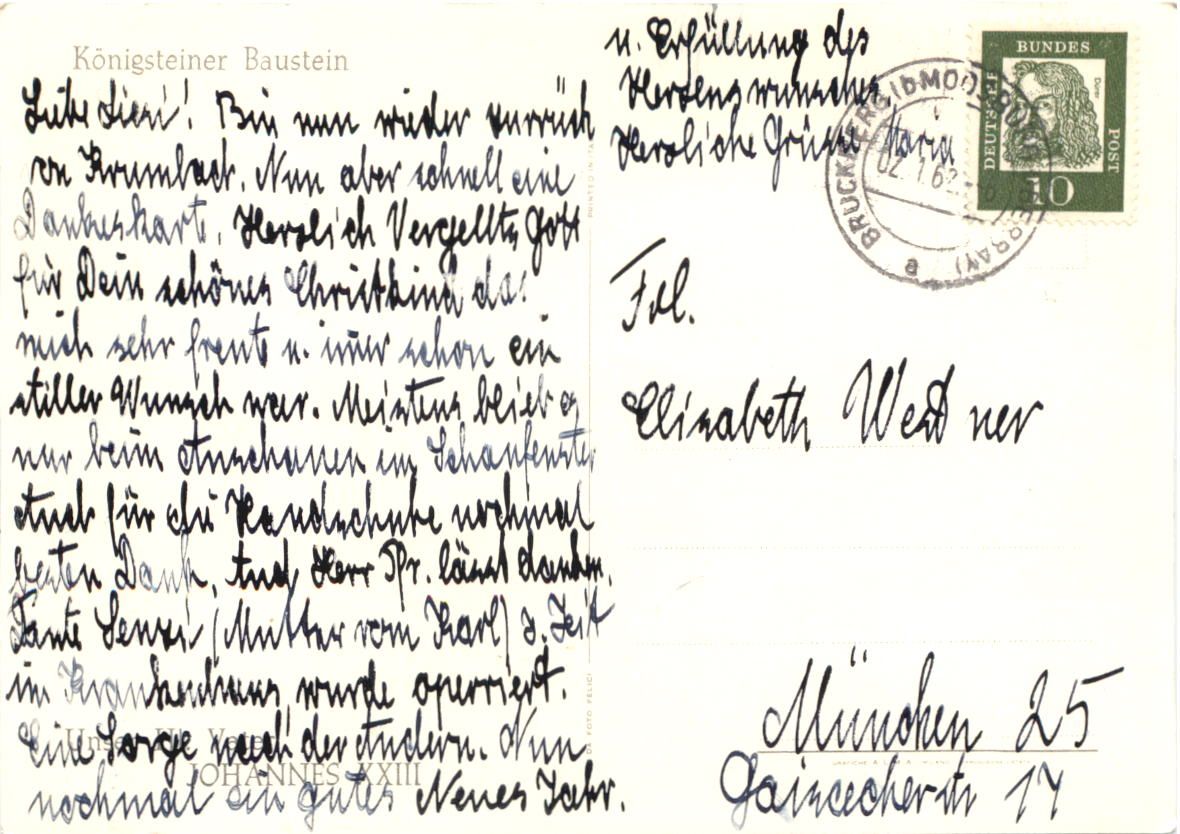 Königsteiner Baustein
Liebe Liesi! Bin nun wieder zurrück
von Krumbach. Nun aber schnell eine
Dankeskarte. Herzlich Vergellts Gott
für Dein schönes Christkind das
mich sehr freute u. imer schon ein
stiller Wunsch war. Meistens blieb es
nur beim Anschauen im Schaufenster
Auch für die Handschuhe nochmal
besten Dank. Auch Herr Pfr. lässt danken.
Tante Senzi (Mutter vom Karl) z. Zeit
im Krankenhaus, wurde operriert.
Eine Sorge nach der Andern. Nun
nochmal ein gutes Neues Jahr.
Unser Hl. Vater
JOHANNES XXIII
u. Erfüllung des
Herzenswunsches.
Herzliche Grüsse Maria
DEUTSCHE
BUNDES
POST
Dürer
10
BRUCKBERG
02.1.62
a
PRINTED IN ITALY
DA FOTO FELICI
Frl.
Elisabeth
München 25
17